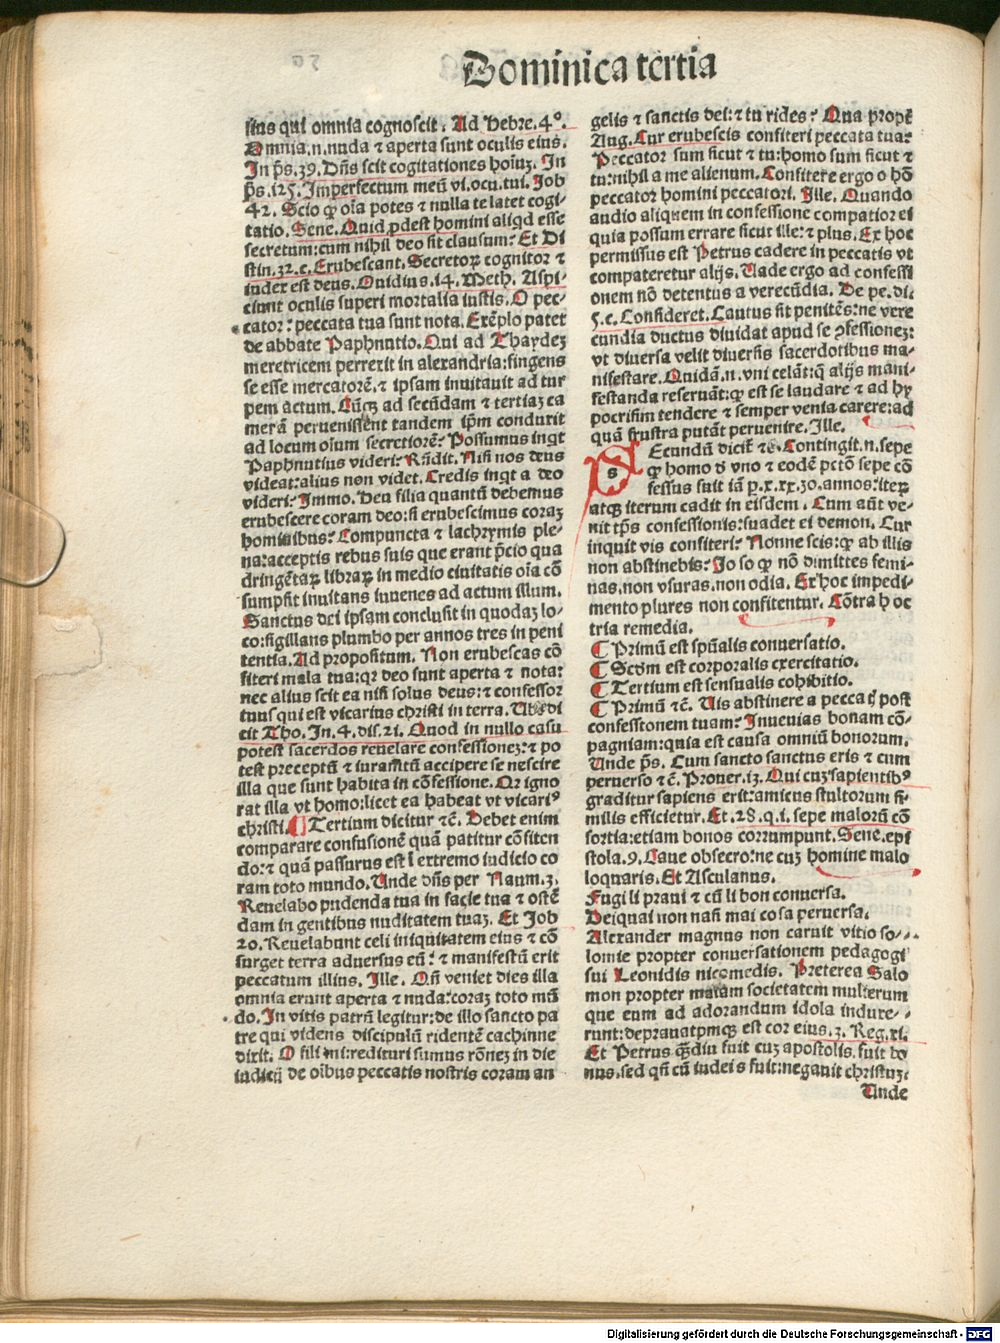 Dominica tertia
sius qui omnia cognoscit. Ad Hebre. 4°.
Omnia.n.nuda ⁊ aperta sunt oculis eius.
In p̄s.39. Dn̄s scit cogitationes hoīuꝫ. In
p̄s.125. Imperfectum meū vi.ocu.tui. Job
42. Scio ꝙ oīa potes ⁊ nulla te latet cogi⸗
tatio. Sene. Quid ꝓdest homini aliqd esse
secretum: cum nihil deo sit clausum? Et Di
stin.32.c. Erubescant. Secretoꝝ cognitor ⁊
iudex est deus. Ouidius.14. Meth. Aspi⸗
ciunt oculis superi mortalia iustis. O pec⸗
cator: peccata tua sunt nota. Exēplo patet
de abbate Paphnutio. Qui ad Thaydeꝫ
meretricem perrexit in alexandria: fingens
se esse mercatorē. ⁊ ipsam inuitauit ad tur
pem actum. Cūqꝫ ad secūdam ⁊ tertiaꝫ ca
merā peruenissent tandem ip̄m conduxit
ad locum oīum secretiorē? Possumus inqt
Paphnutius videri? Rn̄dit. Nisi nos deus
videat: alius non videt. Credis inqt a deo
videri? Immo. Heu filia quantū debemus
erubescere coram deo: si erubescimus coraꝫ
hominibus? Compuncta ⁊ lachrymis ple⸗
na: acceptis rebus suis que erant p̄cio qua
dringētaꝝ libraꝝ in medio ciuitatis oīa cō
sumpsit inuitans iuuenes ad actum illum.
Sanctus dei ipsam conclusit in quodaꝫ lo⸗
co: sigillans plumbo per annos tres in peni
tentia. Ad propositum. Non erubescas cō
fiteri mala tua: qꝛ deo sunt aperta ⁊ nota:
nec alius scit ea nisi solus deus: ⁊ confessor
tuus qui est vicarius christi in terra. Ubi di
cit Tho. In.4.dis.21. Quod in nullo casu
potest sacerdos reuelare confessioneꝫ: ⁊ po
test preceptū ⁊ iuramtū accipere se nescire
illa que sunt habita in cōfessione. Qꝛ igno
rat illa vt homo: licet ea habeat vt vicari⁹
christi. ¶ Tertium dicitur ⁊c̄. Debet enim
comparare confusionē quam patitur cōfiten
do: ⁊ quā passurus est ī extremo iudicio co
ram toto mundo. Unde dn̄s per Naum.3.
Reuelabo pudenda tua in facie tua ⁊ ostē
dam in gentibus nuditatem tuaꝫ. Et Job
20. Reuelabunt celi iniquitatem eius ⁊ cō
surget terra aduersus eū: ⁊ manifestū erit
peccatum illius. Ille. Qn̄ veniet dies illa
omnia erunt aperta ⁊ nuda: coraꝫ toto mū
do. In vitis patrū legitur: de illo sancto pa
tre qui videns discipulū ridentē cachinne
dixit. O fili mi: redituri sumus rōneꝫ in die
iudicij de oībus peccatis nostris coram an
gelis ⁊ sanctis dei: ⁊ tu rides? Qua propt̄
Aug. Cur erubescis confiteri peccata tua:
Peccator sum sicut ⁊ tu: homo sum sicut ⁊
tu: nihil a me alienum. Confitere ergo o hō
peccator homini peccatori. Ille. Quando
audio aliquem in confessione compatior ei
quia possum errare sicut ille: ⁊ plus. Ex hoc
permissus est Petrus cadere in peccatis vt
compateretur alijs. Uade ergo ad confessi
onem nō detentus a verecūdia. De pe.di.
5.c. Consideret. Cautus sit penitēs: ne vere
cundia ductus diuidat apud se ꝯfessioneꝫ:
vt diuersa velit diuersis sacerdotibus ma⸗
nifestare. Quidā.n.vni celāt: q̄ alijs mani⸗
festanda reseruāt: ꝙ est se laudare ⁊ ad hy
pocrisim tendere ⁊ semper venia carere: ad
quā frustra putāt peruenire. Ille.
s Ecundū dicit̄ ⁊c̄. Contingit.n.sepe
ꝙ homo d̄ vno ⁊ eodē pctō sepe cō
fessus fuit iā p.x.xx.30.annos: iteꝝ
atqꝫ iterum cadit in eisdem. Cum aūt ve⸗
nit tp̄s confessionis: suadet ei demon. Cur
inquit vis confiteri? Nonne scis: ꝙ ab illis
non abstinebis? Jo so ꝙ nō dimittes femi⸗
nas. non vsuras. non odia. Ex hoc impedi⸗
mento plures non confitentur. Cōtra hoc
tria remedia.
¶ Primū est spūalis conuersatio.
¶ Scōm est corporalis exercitatio.
¶ Tertium est sensualis cohibitio.
¶ Primū ⁊c̄. Uis abstinere a peccatꝭ post
confesstonem tuam? Inuenias bonam cō⸗
pagniam: quia est causa omniū bonorum.
Unde p̄s. Cum sancto sanctus eris ⁊ cum
peruerso ⁊c̄. Prouer.13. Qui cuꝫ sapientib⁹
graditur sapiens erit: amicus stultorum si⸗
milis efficietur. Et.28.q.1. sepe malorū cō
sortia: etiam bonos corrumpunt. Sene. epi
stola.9. Caue obsecro: ne cuꝫ homine malo
loquaris. Et Asculanus.
Fugi li praui ⁊ cū li bon conuersa.
Dei quai non nasi mai cosa peruersa.
Alexander magnus non caruit vitio so⸗
lomie propter conuersationem pedagogi
sui Leonidis nicomedis. Preterea Salo
mon propter malam societatem mulierum
que eum ad adorandum idola induxe⸗
runt: deprauatumqꝫ est cor eius.3. Reg.xi.
Et Petrus qꝫdiu fuit cuꝫ apostolis. fuit bo
nus. sed qn̄ cū iudeis fuit: negauit christuꝫ.
Unde
Digitalisierung gefördert durch die Deutsche Forschungsgemeinschaft - DFG